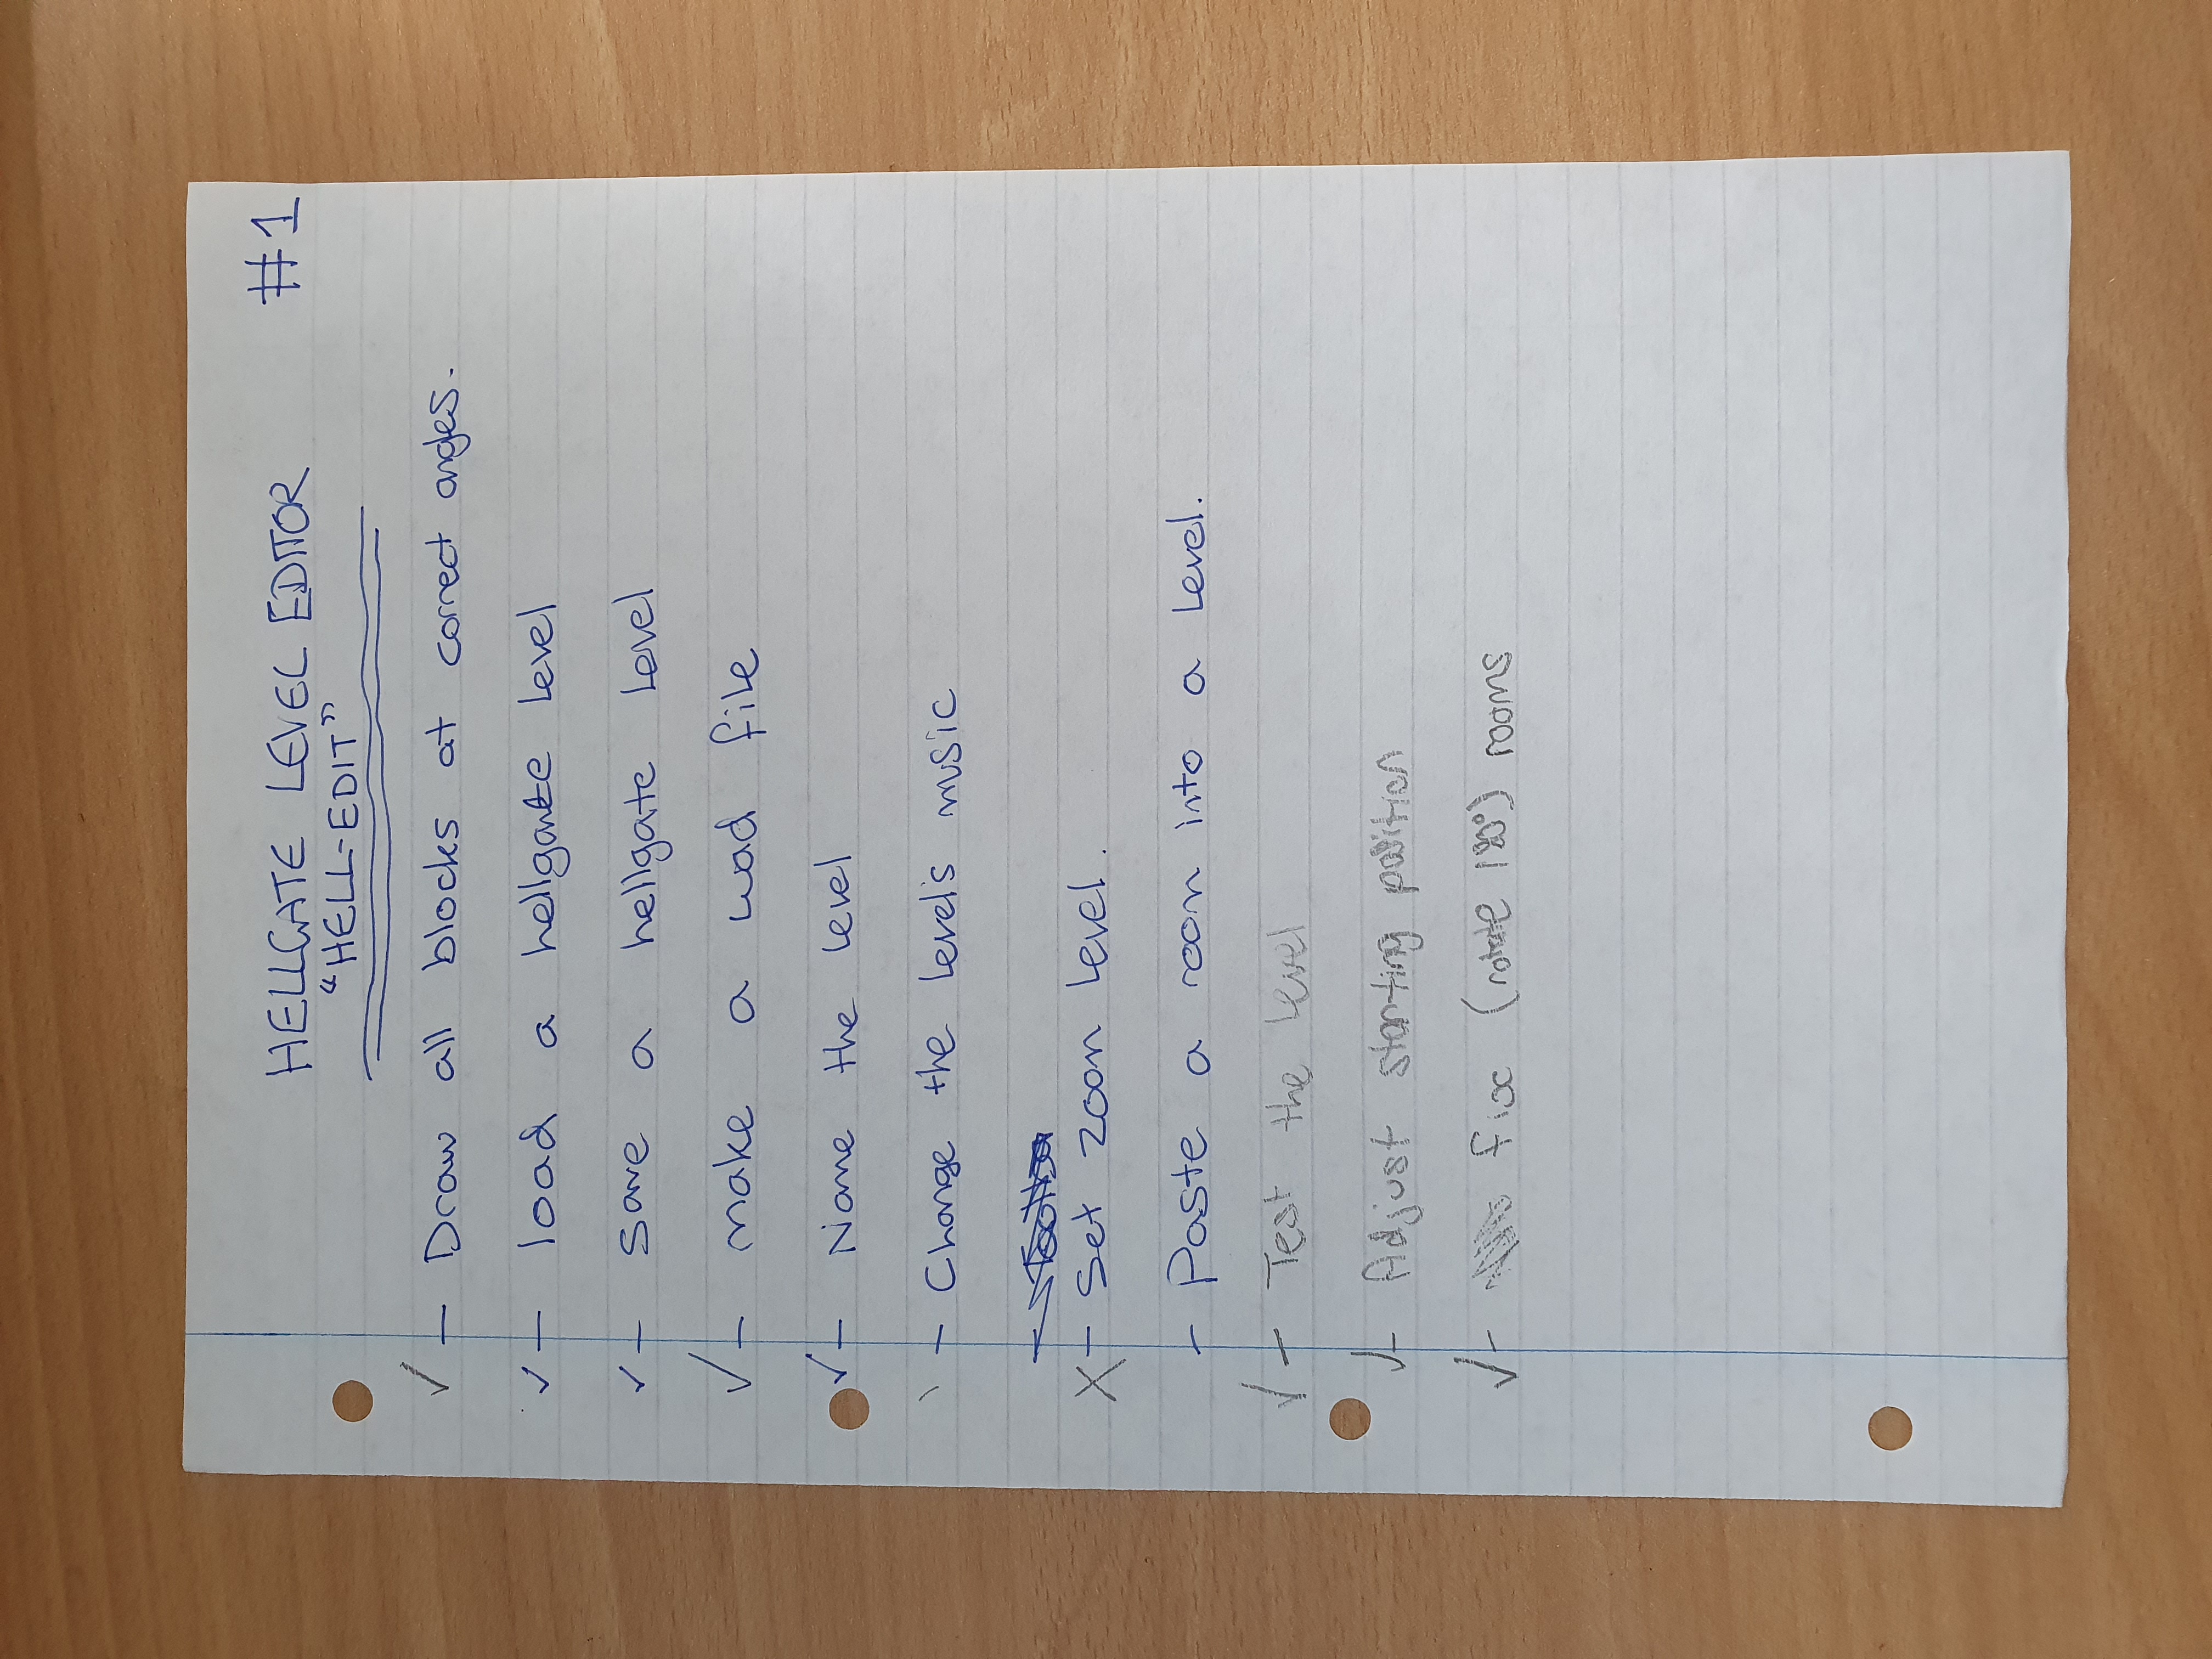 HELLGATE LEVEL EDITOR #1
"HELL-EDIT"
✓ - Draw all blocks at correct angles.
✓ - load a hellgate level
✓ - save a hellgate level
✓ - make a wad file
✓ - Name the level
- Change the level's music
X - Set zoom level.
- Paste a room into a level.
✓ - Test the level
✓ - Adjust starting position
✓ - fix (rotate 180°) rooms